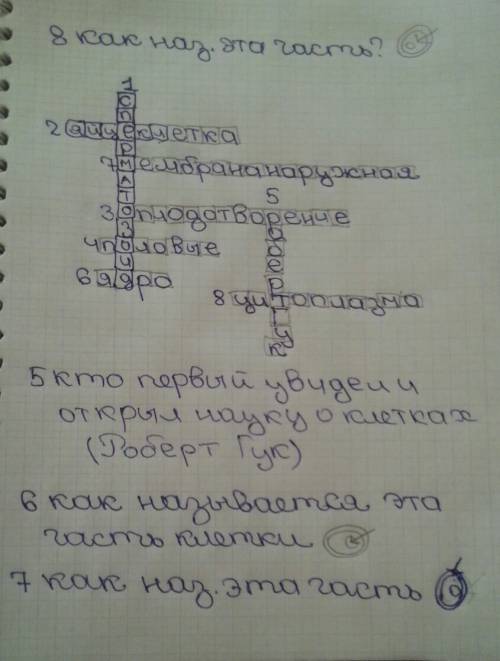 8 как наз. эта часть?
1
сперматозоид
2 яйцеклетка
7 мембрананаружная
5
3 оплодотворение
4 половые
6 ядро
8 цитоплазма
робертгук
5 кто первый увидел и
открыл науку о клетках
(Роберт Гук)
6 как называется эта
часть клетки
7 как наз. эта часть